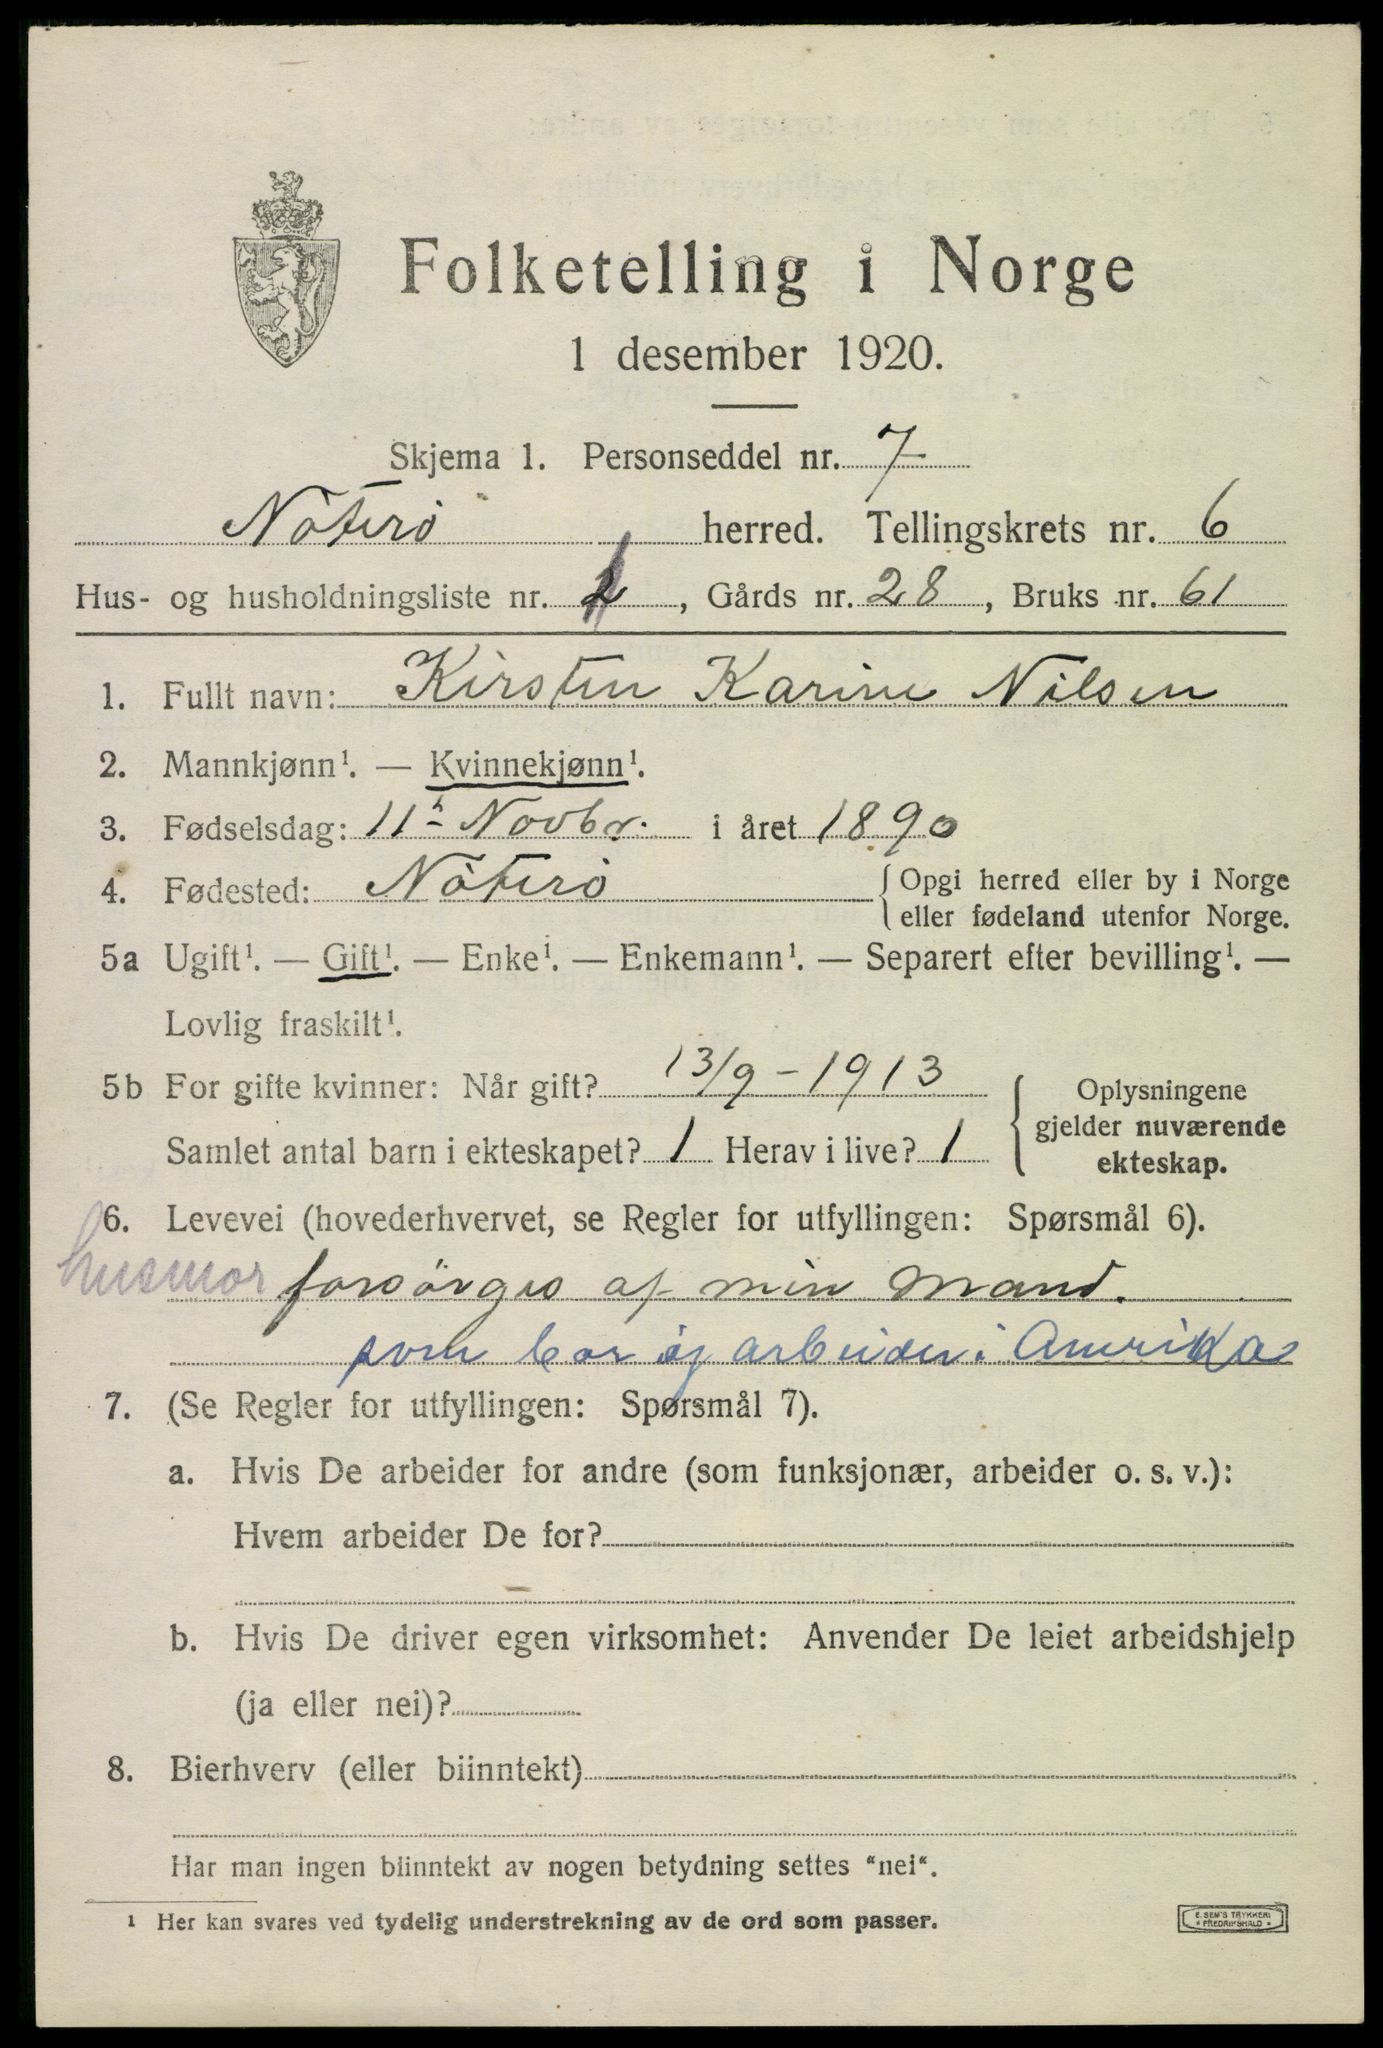 Folketelling i Norge
1 desember 1920.
Skjema 1. Personseddel nr. 7
Nøterö herred. Tellingskrets nr. 6
Hus- og husholdningsliste nr. , Gårds nr. 28, Bruks nr. 61
1. Fullt navn: Kirsten Karine Nilsen
2. Mannkjønn¹. — Kvinnekjønn¹.
3. Fødselsdag: 11' Novbr. i året 1890
4. Fødested: Nöterö { Opgi herred eller by i Norge
eller fødeland utenfor Norge.
5a Ugift¹. — Gift¹. — Enke¹. — Enkemann¹. — Separert efter bevilling¹. —
Lovlig fraskilt¹.
5b For gifte kvinner: Når gift? 13/9 - 1913
Samlet antal barn i ekteskapet? 1 Herav i live? 1
Oplysningene
gjelder nuværende
ekteskap.
6. Levevei (hovederhvervet, se Regler for utfyllingen: Spørsmål 6).
husmor forsörges af min Mand.
som bor og arbeider i Amerika
7. (Se Regler for utfyllingen: Spørsmål 7).
a. Hvis De arbeider for andre (som funksjonær, arbeider o. s. v.):
Hvem arbeider De for?
b. Hvis De driver egen virksomhet: Anvender De leiet arbeidshjelp
(ja eller nei)?
8. Bierhverv (eller biinntekt)
Har man ingen biinntekt av nogen betydning settes "nei".
¹ Her kan svares ved tydelig understrekning av de ord som passer.
E. SEM'S TRYKKERI
* FREDRIKSHALD *